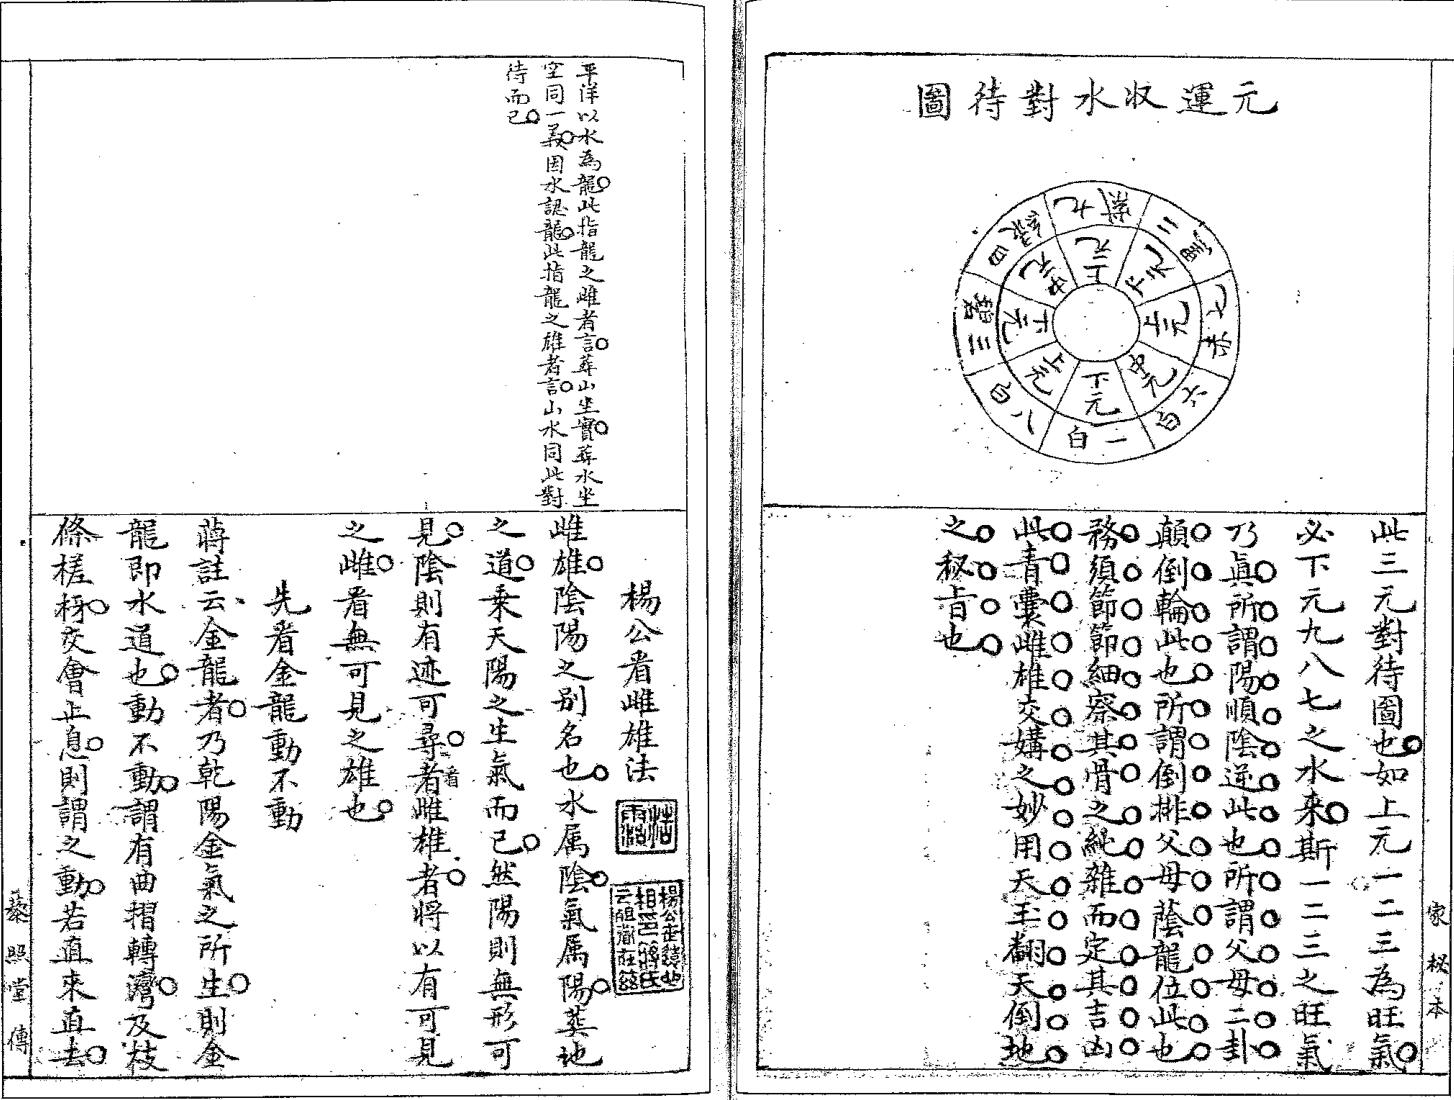 元運收水對待圖
九紫
二黑
七赤
六白
一白
八白
三碧
四綠
上元
下元
上元
中元
下元
上元
下元
中元
此三元對待圖也如上元一二三為旺氣
必下元九八七之水来斯一二三之旺氣
乃真所謂陽順陰逆此也所謂父母二卦
顛倒輪此也所謂倒排父母蔭龍位此也
務須節節細察其骨之純雜而定其吉凶
此青囊雌雄交媾之妙用天玉翻天倒地
之秘旨也
家秘本
平洋以水為龍此指龍之雌者言葬山坐實葬水坐
空同一義因水認龍此指龍之雄者言山水同此對
待而已
楊公看雌雄法
雌雄陰陽之别名也水属陰氣属陽葬地
之道乘天陽之生氣而已然陽則無形可
見陰則有迹可尋者看雌雄者將以有可見
之雌看無可見之雄也
先看金龍動不動
蔣註云金龍者乃乾陽金氣之所生則金
龍即水道也動不動謂有曲摺轉灣及枝
條槎枒交會止息則謂之動若直來直去
藜照堂傳